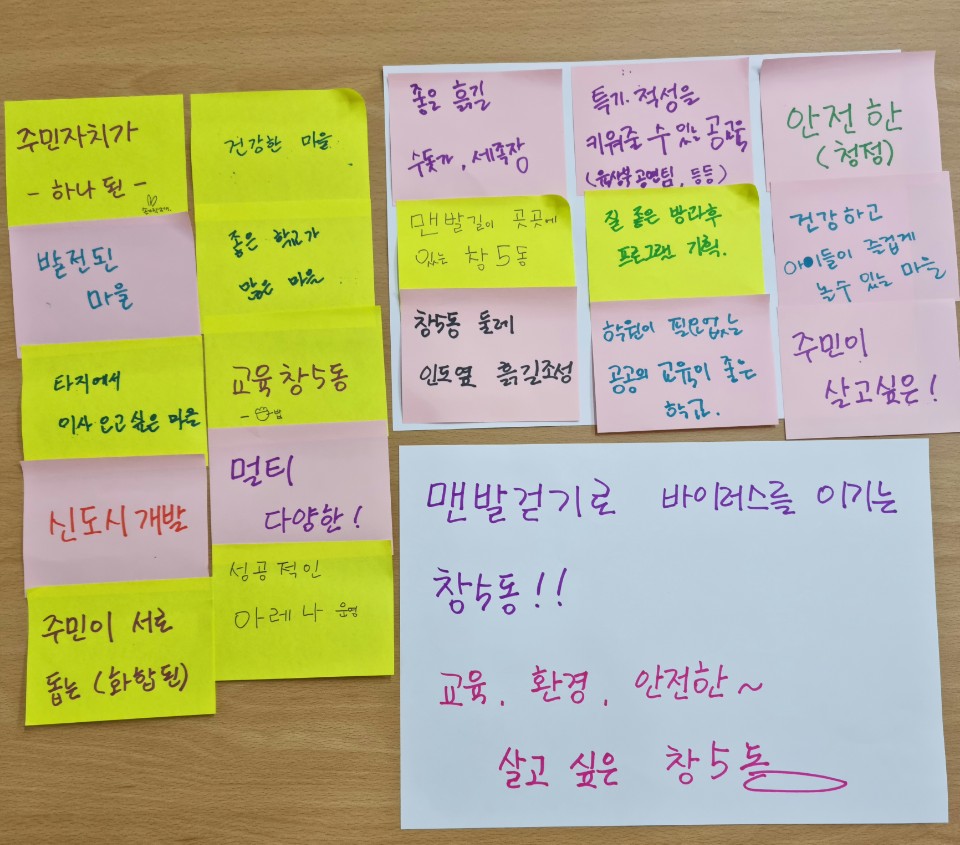 주민자치가
- 하나 된 -
발전된
마을
타지에서
이사 오고 싶은 마을
신도시 개발
주민이 서로
돕는 (화합된)
건강한 마을
좋은 학교가
많은 마을
교육 창5동
멀티
다양한!
성공적인
아레나 운영
좋은 흙길
수돗가, 세족장
맨발길이 곳곳에
있는 창5동
창5동 둘레
인도옆 흙길조성
특기·적성을
키워줄 수 있는 공교육
공연팀, 등등)
질 좋은 방과후
프로그램 기획.
학원이 필요없는
공공의 교육이 좋은
학교.
안전한
(청정)
건강하고
아이들이 즐겁게
놀수 있는 마을
주민이
살고싶은!
맨발걷기로 바이러스를 이기는
창5동!!
교육, 환경, 안전한~
살고 싶은 창5동